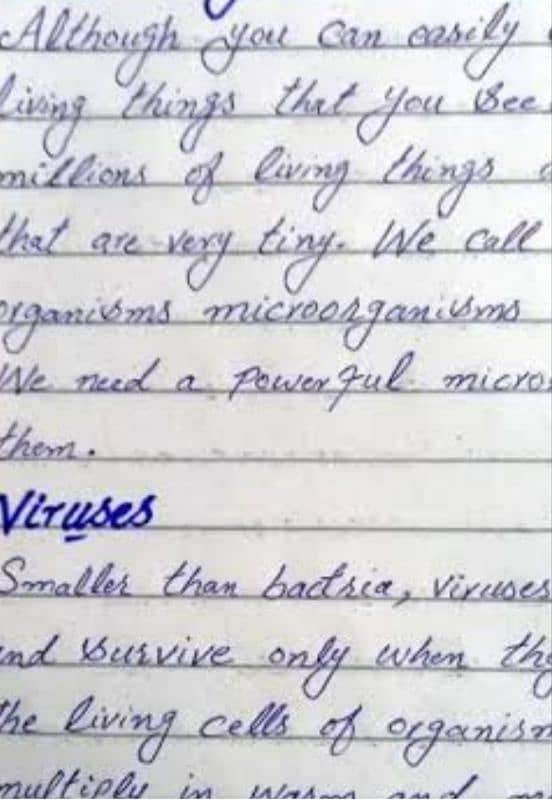 Although you can easily
living things that you see
millions of living things
that are very tiny. We call
organisms microorganisms
We need a powerful micro
them.
Viruses
Smaller than bactria, viruses
and survive only when the
the living cells of organism
multiply in warm and